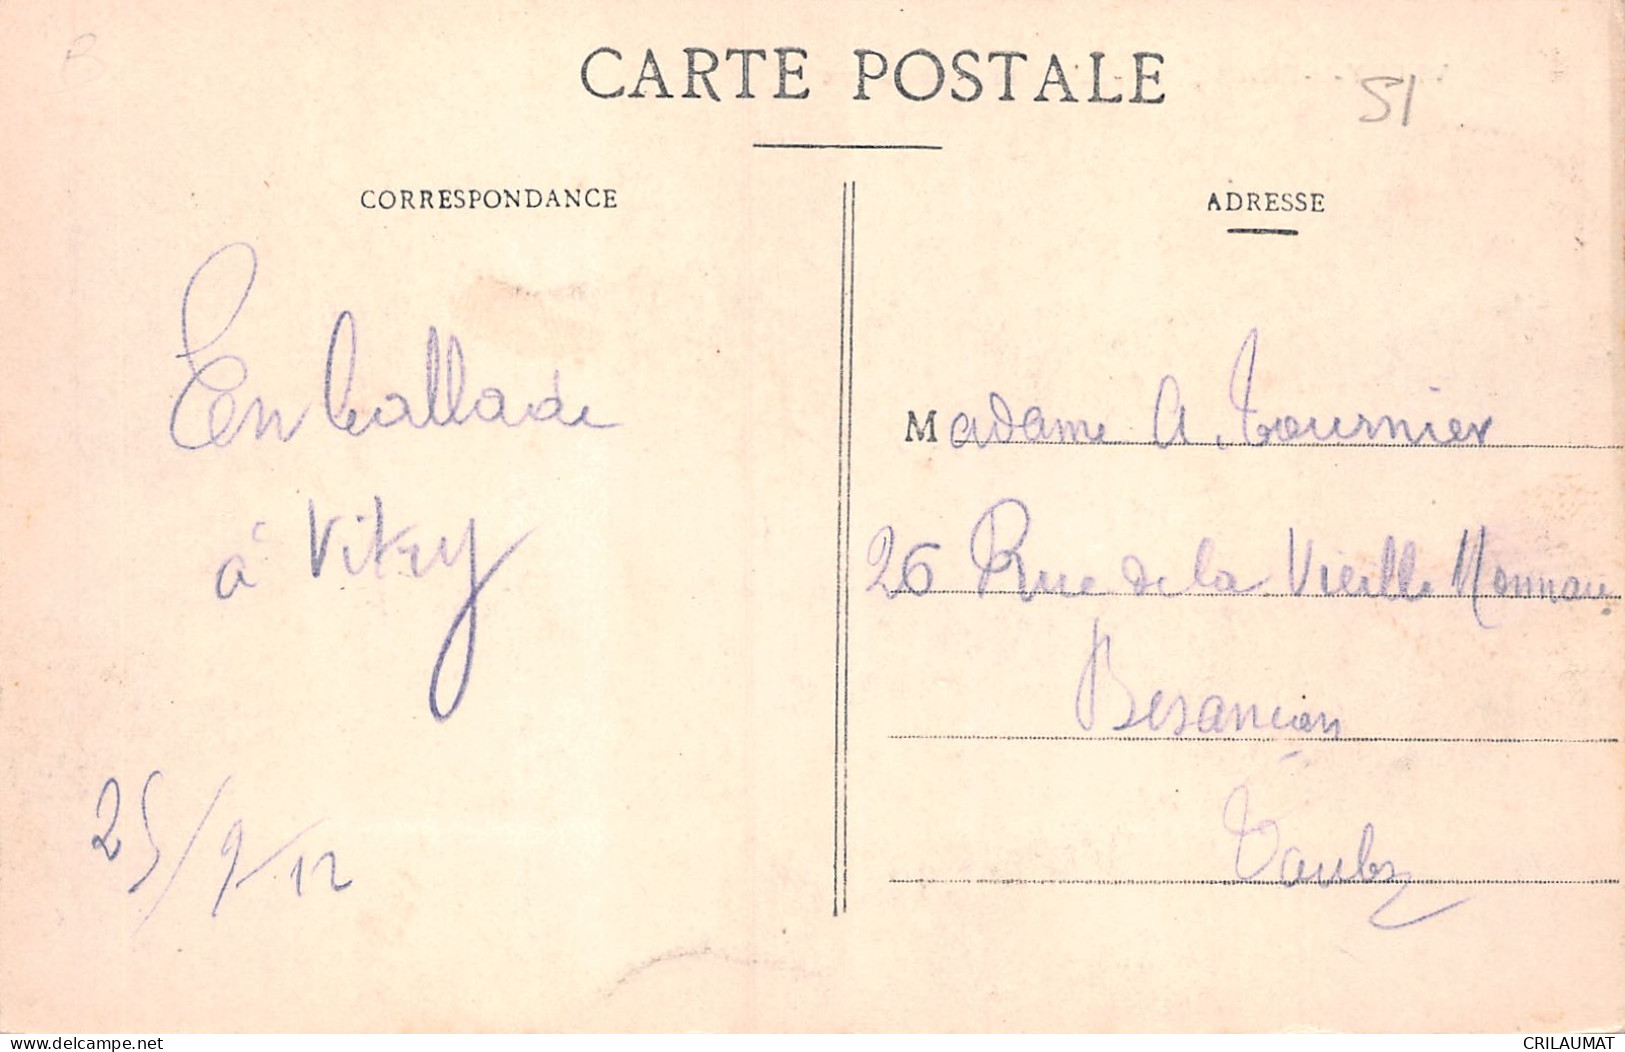 CARTE POSTALE
51
CORRESPONDANCE
En ballade
à Vitry
25/9-12
ADRESSE
Madame A. Tournier
26 Rue de la Vieille Monnaie
Besançon
Doubs
www.delcampe.net
CRILAUMAT